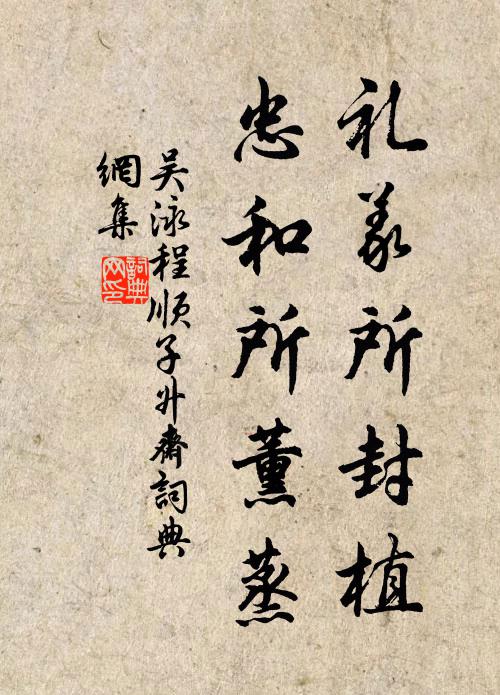 礼义所封植
忠和所薰蒸
吴泳程顺子升齋詞典
網集
詞典
网印